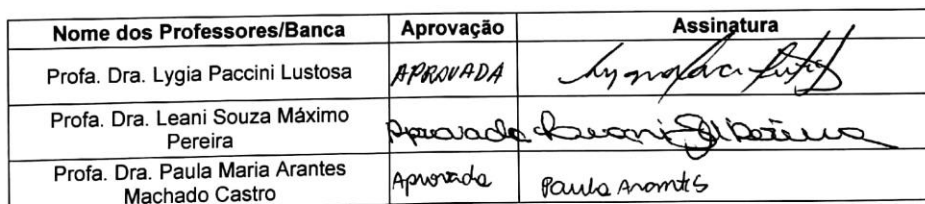 Nome dos Professores/Banca Aprovação Assinatura
Profa. Dra. Lygia Paccini Lustosa APROVADA
Profa. Dra. Leani Souza Máximo
Pereira Aprovada Leani
Profa. Dra. Paula Maria Arantes
Machado Castro Aprovada Paula Arantes